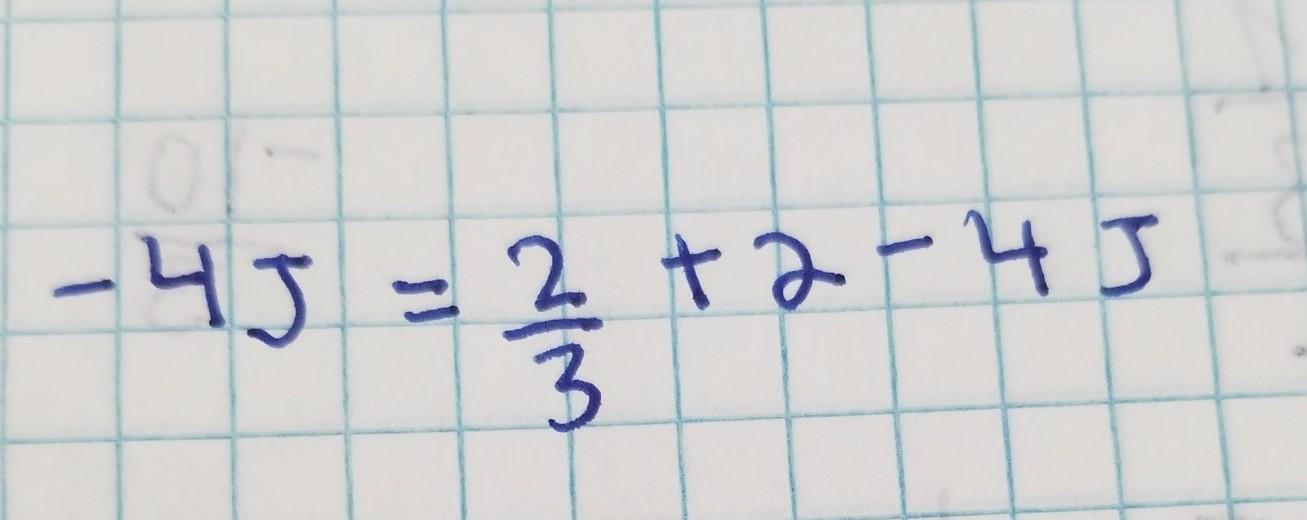 -4J = 2/3 + 2 - 4J